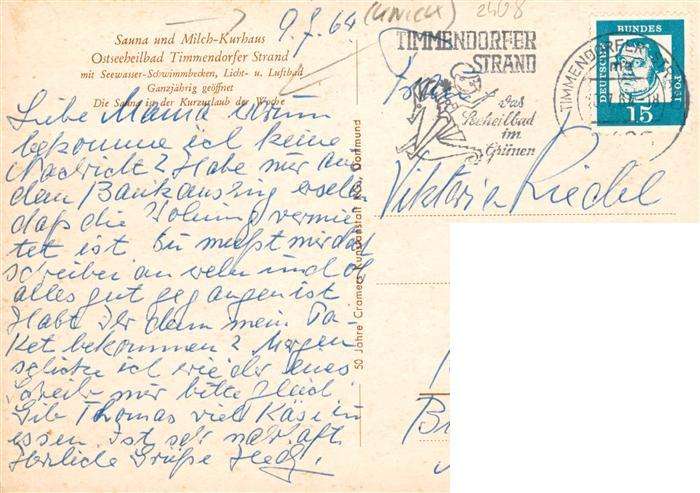 9.7.64
2408
Sauna und Milch-Kurhaus
Ostseeheilbad Timmendorfer Strand
mit Seewasser-Schwimmbecken, Licht- u. Luftbad
Ganzjährig geöffnet
Die Sauna in der Kurzuglaub der Woche
Liebe Mama warum
bekomme ich keine
Nachricht? Habe nur aus
dem Bankauszug ersehen
daß die Wohnung vermie-
tet ist. Du mußt mir doch
schreiben an wehn und ob
alles gut gegangen ist
Habt Ihr denn mein Pa-
ket bekommen? Morgen
schicke ich wieder eines
Schreib mir bitte gleich.
Gib Thomas viel Käse zu
essen. Ist sehr nahrhaft
Herzliche Grüße
50 Jahre Cramers Kunstanstalt KG, Dortmund
TIMMENDORFER
STRAND
Das
Seeheilbad
im
Grünen
TIMMENDORFER
DEUTSCHE BUNDESPOST
15
Frau
Viktoria Riedel